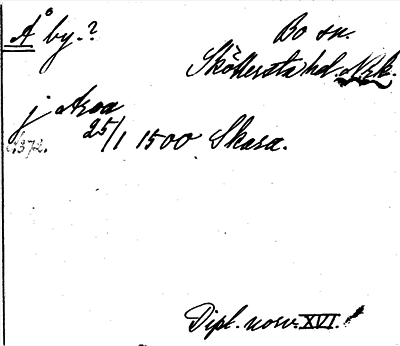 Å by.?
Bo sn.
Sköllersta hd. Nrk.
j Aroa
25/1 1500 Skara.
Dipl. norv. XVI.